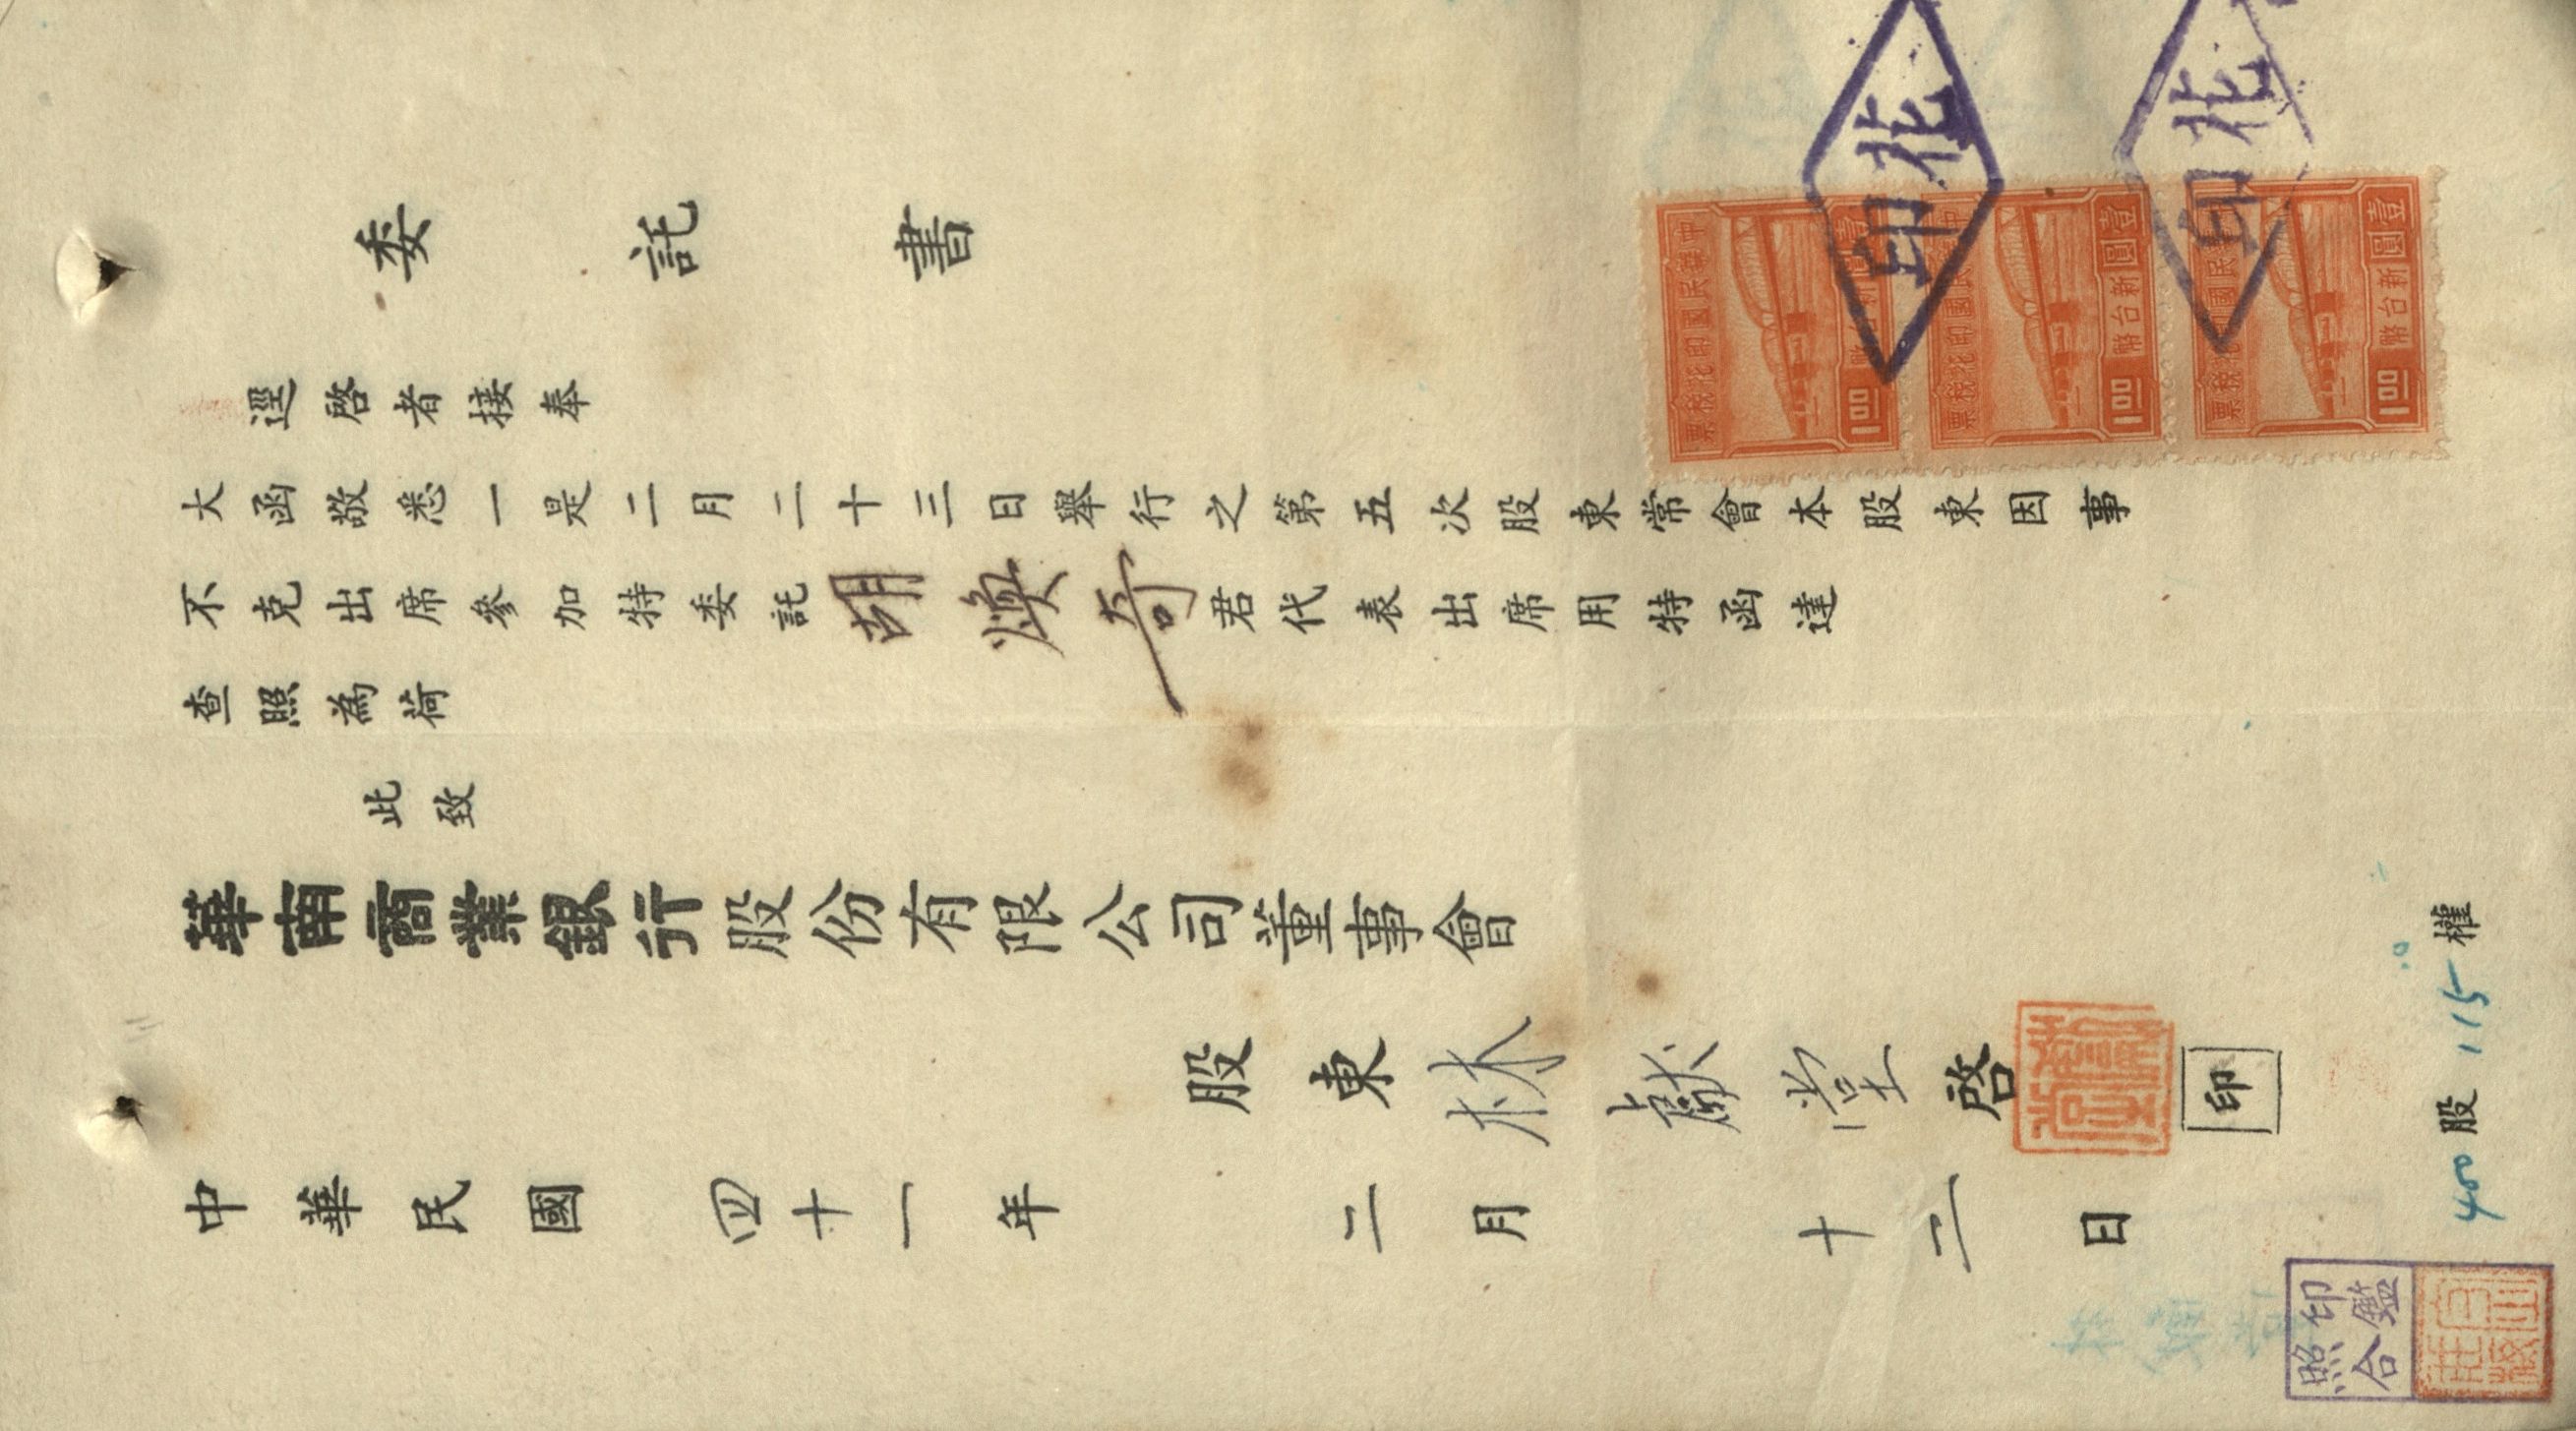 委託書
逕啓者接奉
大函敬悉一是二月二十三日舉行之第五次股東常會本股東因事
不克出席參加特委託胡煥奇君代表出席用特函達
查照為荷
此致
華南商業銀行股份有限公司董事會
股東林献堂啓
印
中華民國四十一年二月十二日
400股115權
印鑑
照合
印花
印花
中華民國印花稅票
壹圓
新台幣
1.00
中華民國印花稅票
壹圓
新台幣
1.00
中華民國印花稅票
壹圓
新台幣
1.00